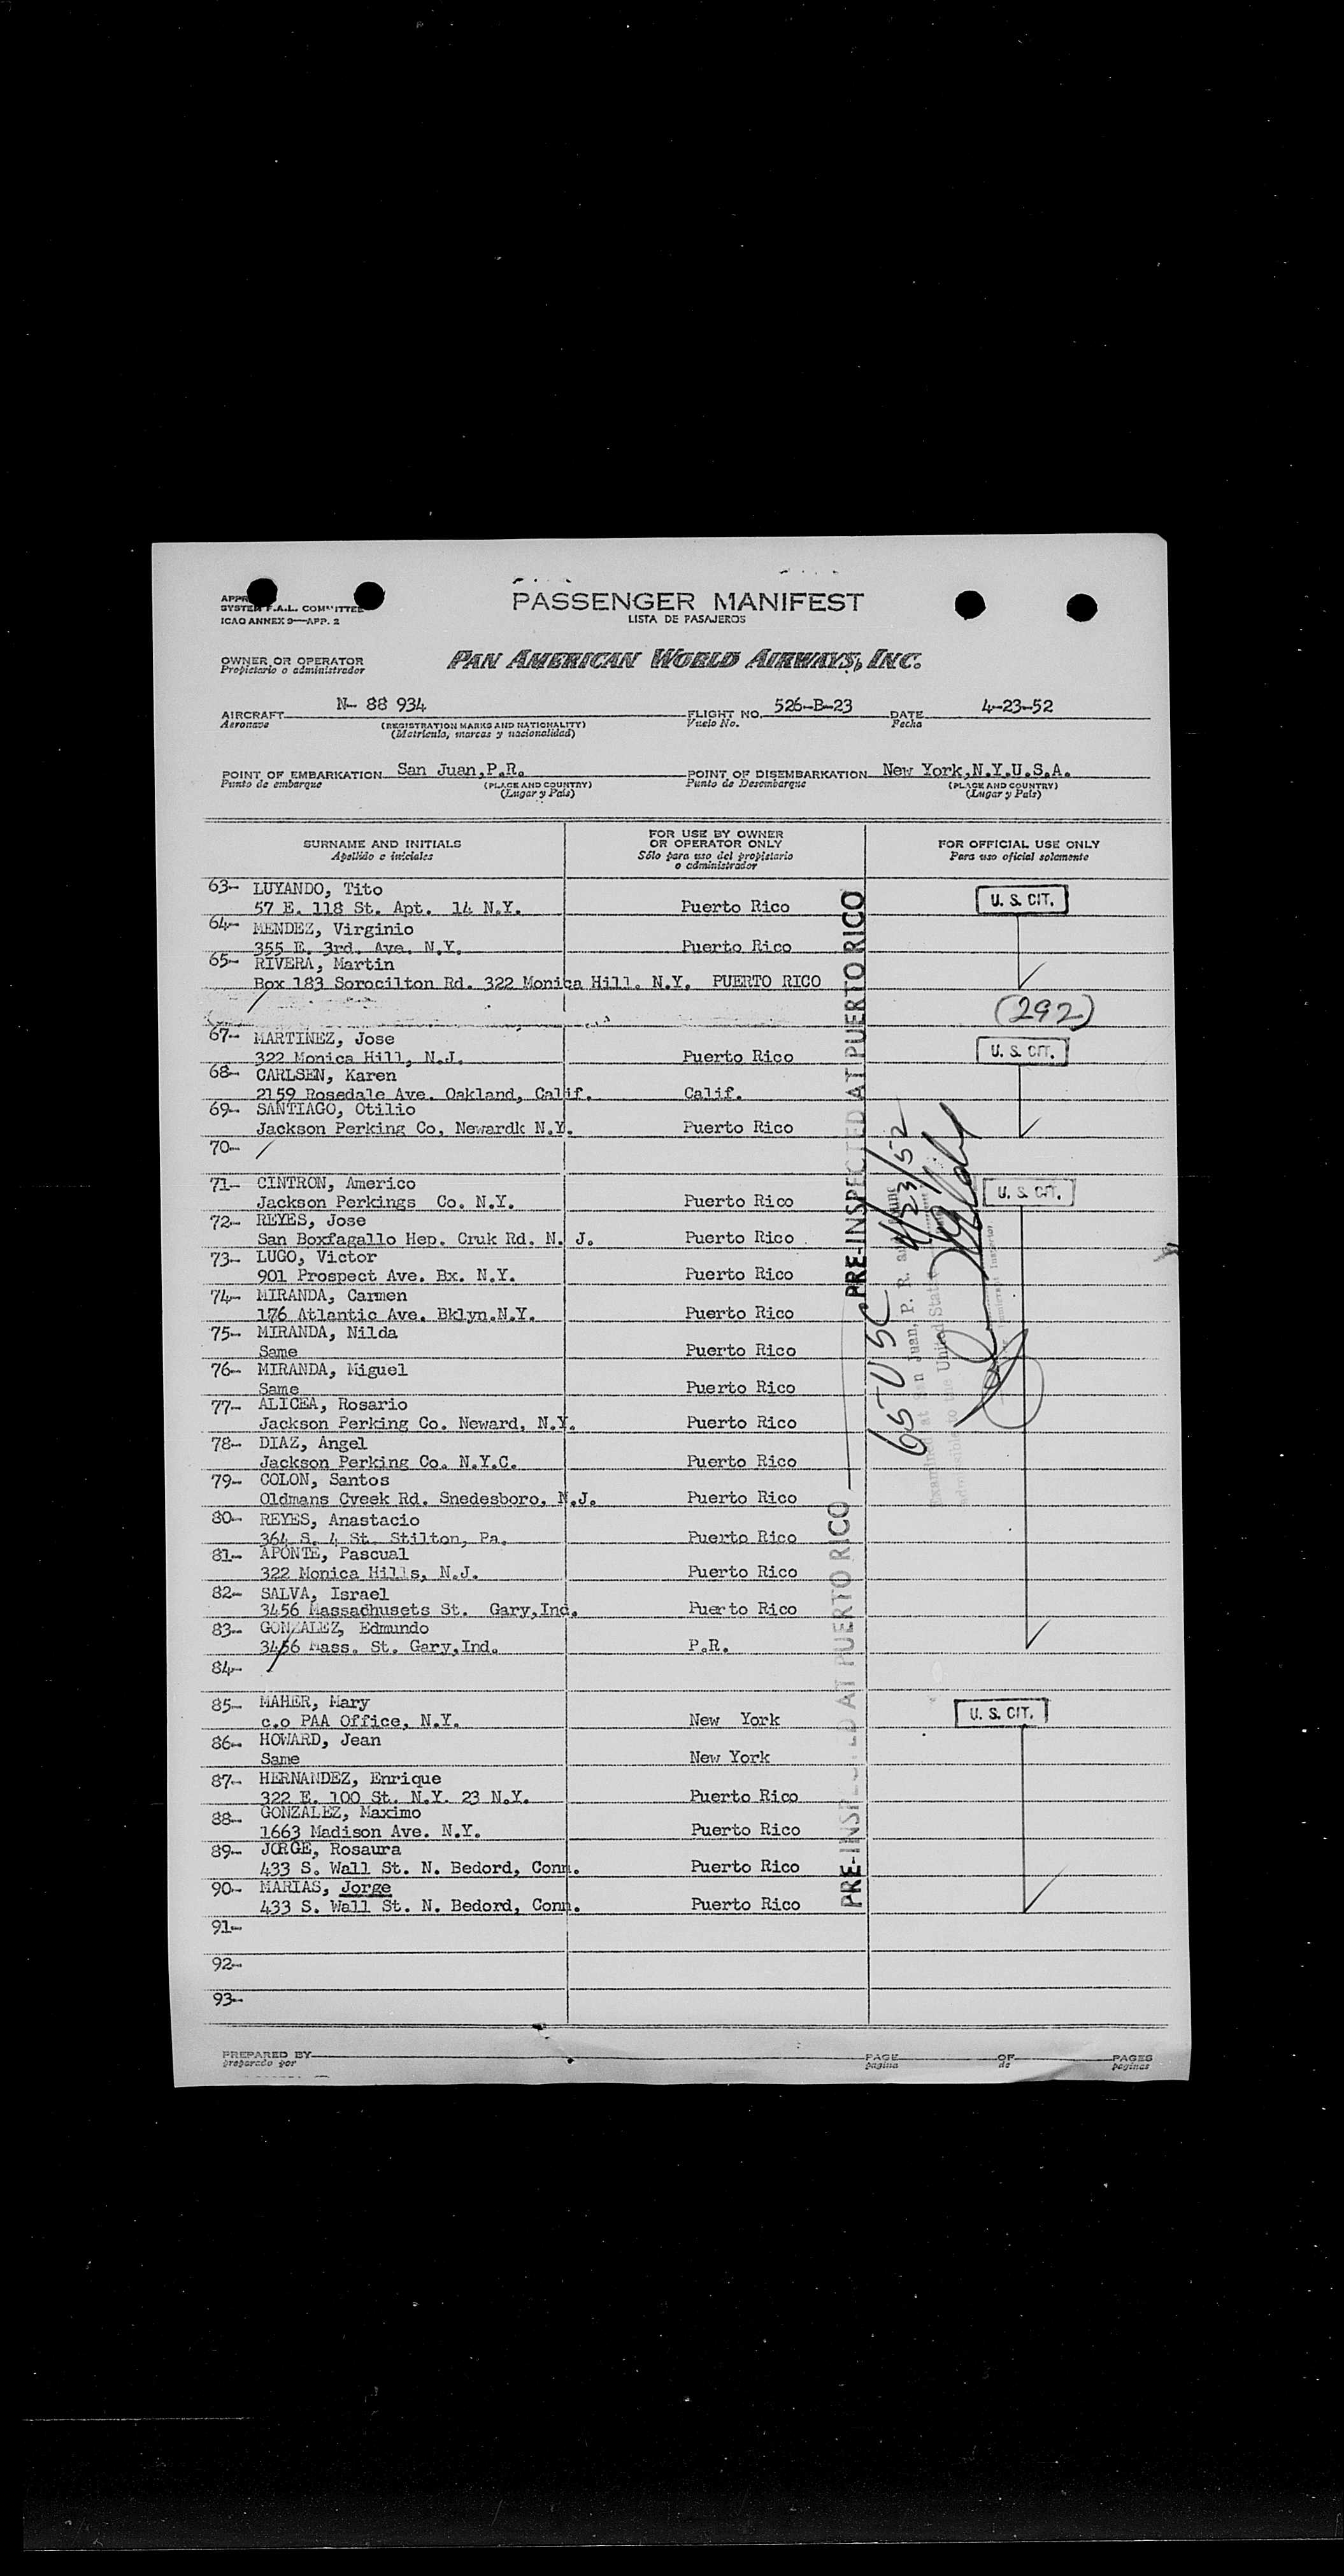 PASSENGER MANIFEST
LISTA DE PASAJEROS
SYSTEM F.A.L. COMMITTEE
ICAO ANNEX 9—APP. 2
OWNER OR OPERATOR
Propietario o administrador
PAN AMERICAN WORLD AIRWAYS, INC.
AIRCRAFT N- 88 934 FLIGHT NO. 526-B-23 DATE 4-23-52
Aeronave (REGISTRATION MARKS AND NATIONALITY) Vuelo No. Fecha
(Matricula, marcas y nacionalidad)
POINT OF EMBARKATION San Juan,P.R. POINT OF DISEMBARKATION New York,N.Y.U.S.A.
Punto de embarque (PLACE AND COUNTRY) Punto de Desembarque (PLACE AND COUNTRY)
(Lugar y País) (Lugar y País)
SURNAME AND INITIALS
Apellido e iniciales
FOR USE BY OWNER
OR OPERATOR ONLY
Sólo para uso del propietario
o administrador
FOR OFFICIAL USE ONLY
Para uso oficial solamente
63- LUYANDO, Tito
57 E. 118 St. Apt. 14 N.Y. Puerto Rico U. S. CIT.
64- MENDEZ, Virginio
355 E. 3rd. Ave. N.Y. Puerto Rico
65- RIVERA, Martin
Box 183 Sorocilton Rd. 322 Monica Hill. N.Y. PUERTO RICO
(292)
67- MARTINEZ, Jose
322 Monica Hill, N.J. Puerto Rico U. S. CIT.
68- CARLSEN, Karen
2159 Rosedale Ave. Oakland, Calif. Calif.
69- SANTIAGO, Otilio
Jackson Perking Co, Newardk N.Y. Puerto Rico
70- /
71- CINTRON, Americo
Jackson Perkings Co. N.Y. Puerto Rico U. S. CIT.
72- REYES, Jose
San Boxfagallo Hep. Cruk Rd. N. J. Puerto Rico
73- LUGO, Victor
901 Prospect Ave. Bx. N.Y. Puerto Rico
74- MIRANDA, Carmen
176 Atlantic Ave. Bklyn.N.Y. Puerto Rico
75- MIRANDA, Nilda
Same Puerto Rico
76- MIRANDA, Miguel
Same Puerto Rico
77- ALICEA, Rosario
Jackson Perking Co. Neward, N.Y. Puerto Rico
78- DIAZ, Angel
Jackson Perking Co. N.Y.C. Puerto Rico
79- COLON, Santos
Oldmans Cveek Rd. Snedesboro, N.J. Puerto Rico
80- REYES, Anastacio
364 S. 4 St. Stilton, Pa. Puerto Rico
81- APONTE, Pascual
322 Monica Hills, N.J. Puerto Rico
82- SALVA, Israel
3456 Massadhusets St. Gary,Ind. Puerto Rico
83- GONZALEZ, Edmundo
3456 Mass. St. Gary,Ind. P.R.
84- /
85- MAHER, Mary
c.o PAA Office, N.Y. New York U. S. CIT.
86- HOWARD, Jean
Same New York
87- HERNANDEZ, Enrique
322 E. 100 St. N.Y. 23 N.Y. Puerto Rico
88- GONZALEZ, Maximo
1663 Madison Ave. N.Y. Puerto Rico
89- JORGE, Rosaura
433 S. Wall St. N. Bedord, Conn. Puerto Rico
90- MARIAS, Jorge
433 S. Wall St. N. Bedord, Conn. Puerto Rico
91-
92-
93-
PRE-INSPECTED AT PUERTO RICO
PRE-INSPECTED AT PUERTO RICO
65 USC 4/23/52
Examined at San Juan, P. R. and
admissible to the United States
Immigrant Inspector
PREPARED BY PAGE OF PAGES
preparado por pagina de paginas